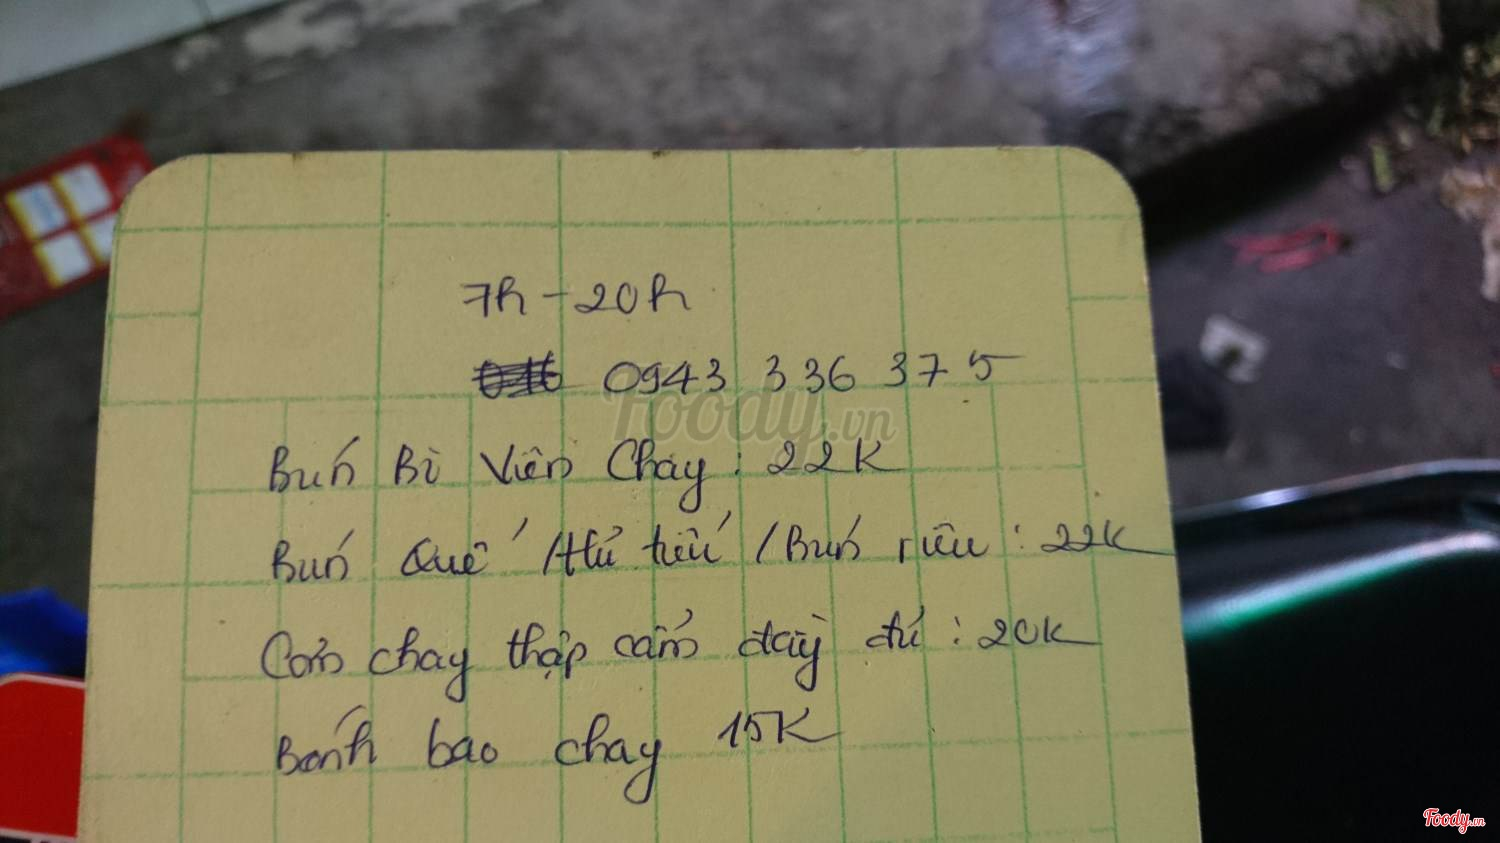 7h - 20h
0943 336 375
Foody.vn
Bún Bì Viên Chay : 22K
Bún Quế / Hủ tiếu / Bún riêu : 22K
Cơm chay thập cẩm đầy đủ : 20K
Bánh bao chay 15K
Foody.vn